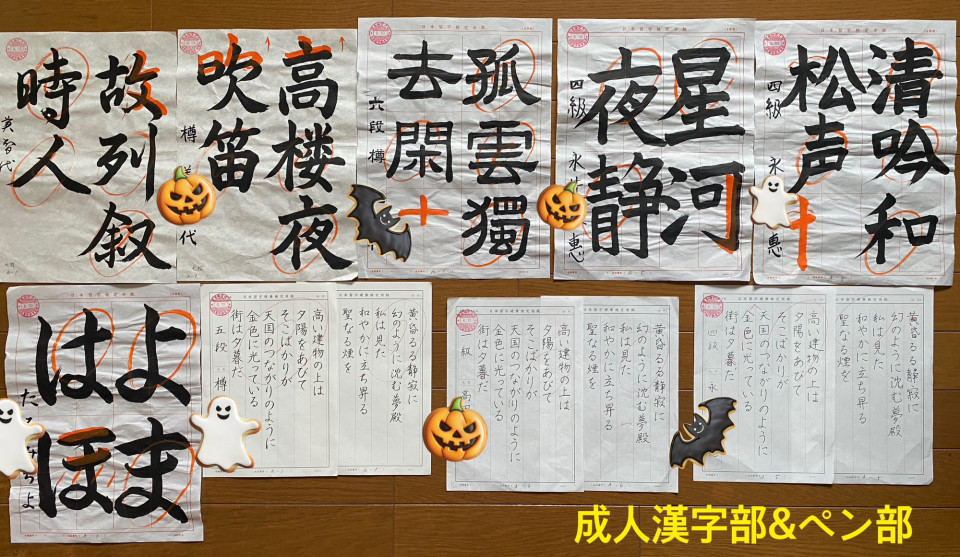 故列叙
時人
高楼夜
吹笛
樽 代
孤雲獨
去閑
六段 樽
星河
夜静
四級 永 恵
清吟和
松声
四級 永 恵
よま
はほ
黄昏るる静寂に
幻のように沈む夢殿
私は見た
和やかに立ち昇る
聖なる煙を
高い建物の上は
夕陽をあびて
そこばかりが
天国のつながりのように
金色に光っている
街は夕暮だ
五段 樽
黄昏るる静寂に
幻のように沈む夢殿
私は見た
和やかに立ち昇る
聖なる煙を
高い建物の上は
夕陽をあびて
そこばかりが
天国のつながりのように
金色に光っている
街は夕暮だ
級 高
黄昏るる静寂に
幻のように沈む夢殿
私は見た
和やかに立ち昇る
聖なる煙を
高い建物の上は
夕陽をあびて
そこばかりが
天国のつながりのように
金色に光っている
街は夕暮だ
四段 永
成人漢字部&ペン部